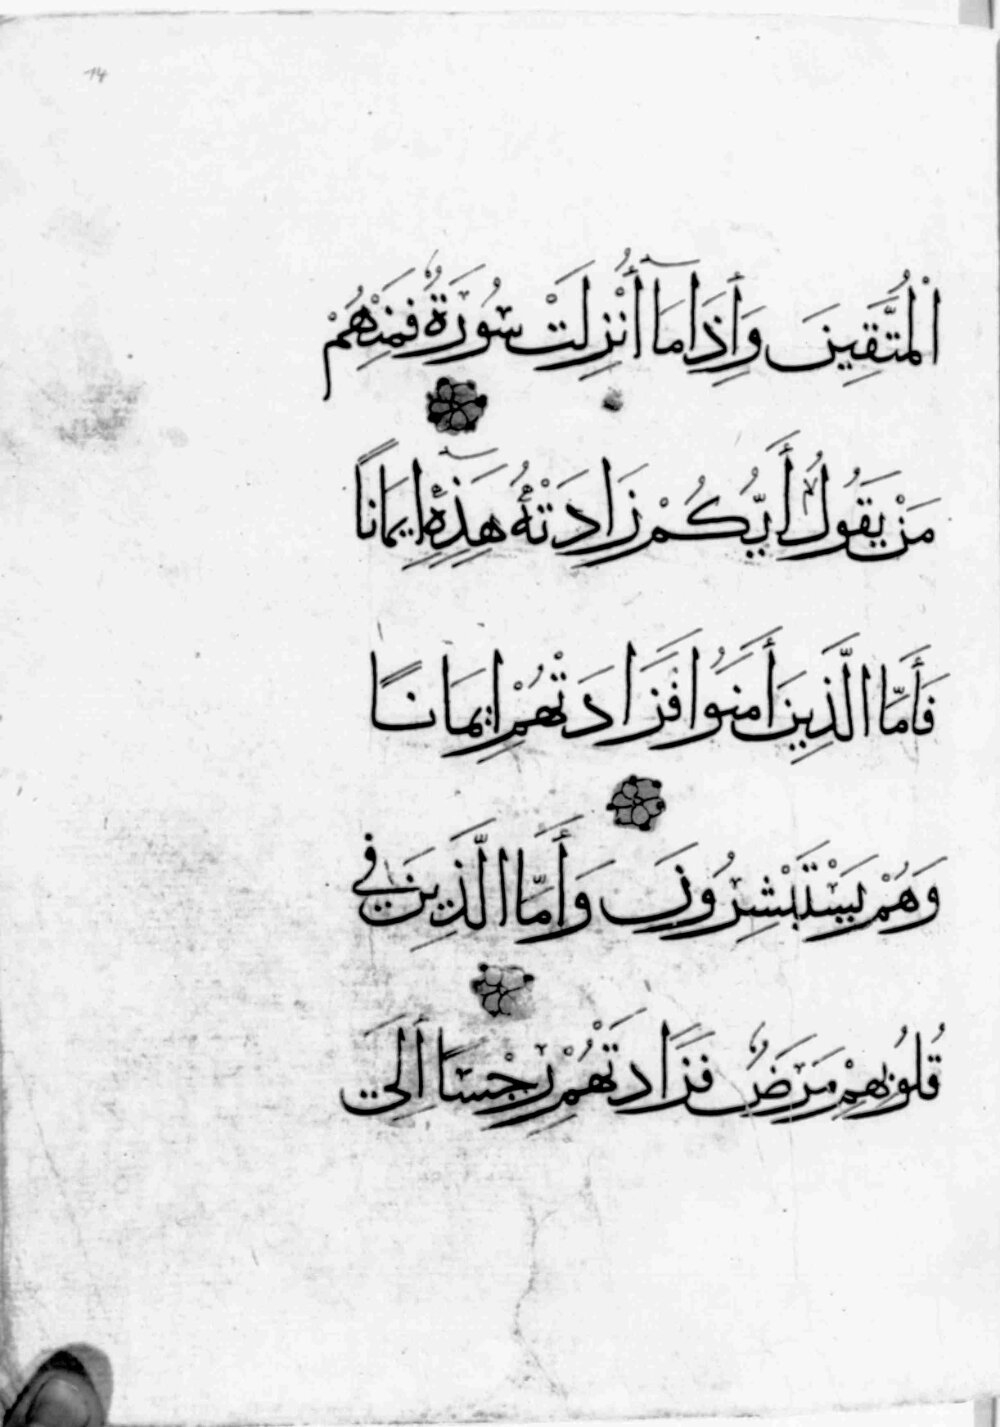 14
الْمُتَّقِينَ وَإِذَا مَا أُنْزِلَتْ سُورَةٌ فَمِنْهُمْ
مَنْ يَقُولُ أَيُّكُمْ زَادَتْهُ هَذِهِ إِيمَانًا
فَأَمَّا الَّذِينَ أَمَنُوا فَزَادَتْهُمْ إِيمَانًا
وَهُمْ يَسْتَبْشِرُونَ وَأَمَّا الَّذِينَ فِي
قُلُوبِهِمْ مَرَضٌ فَزَادَتْهُمْ رِجْسًا إِلَى